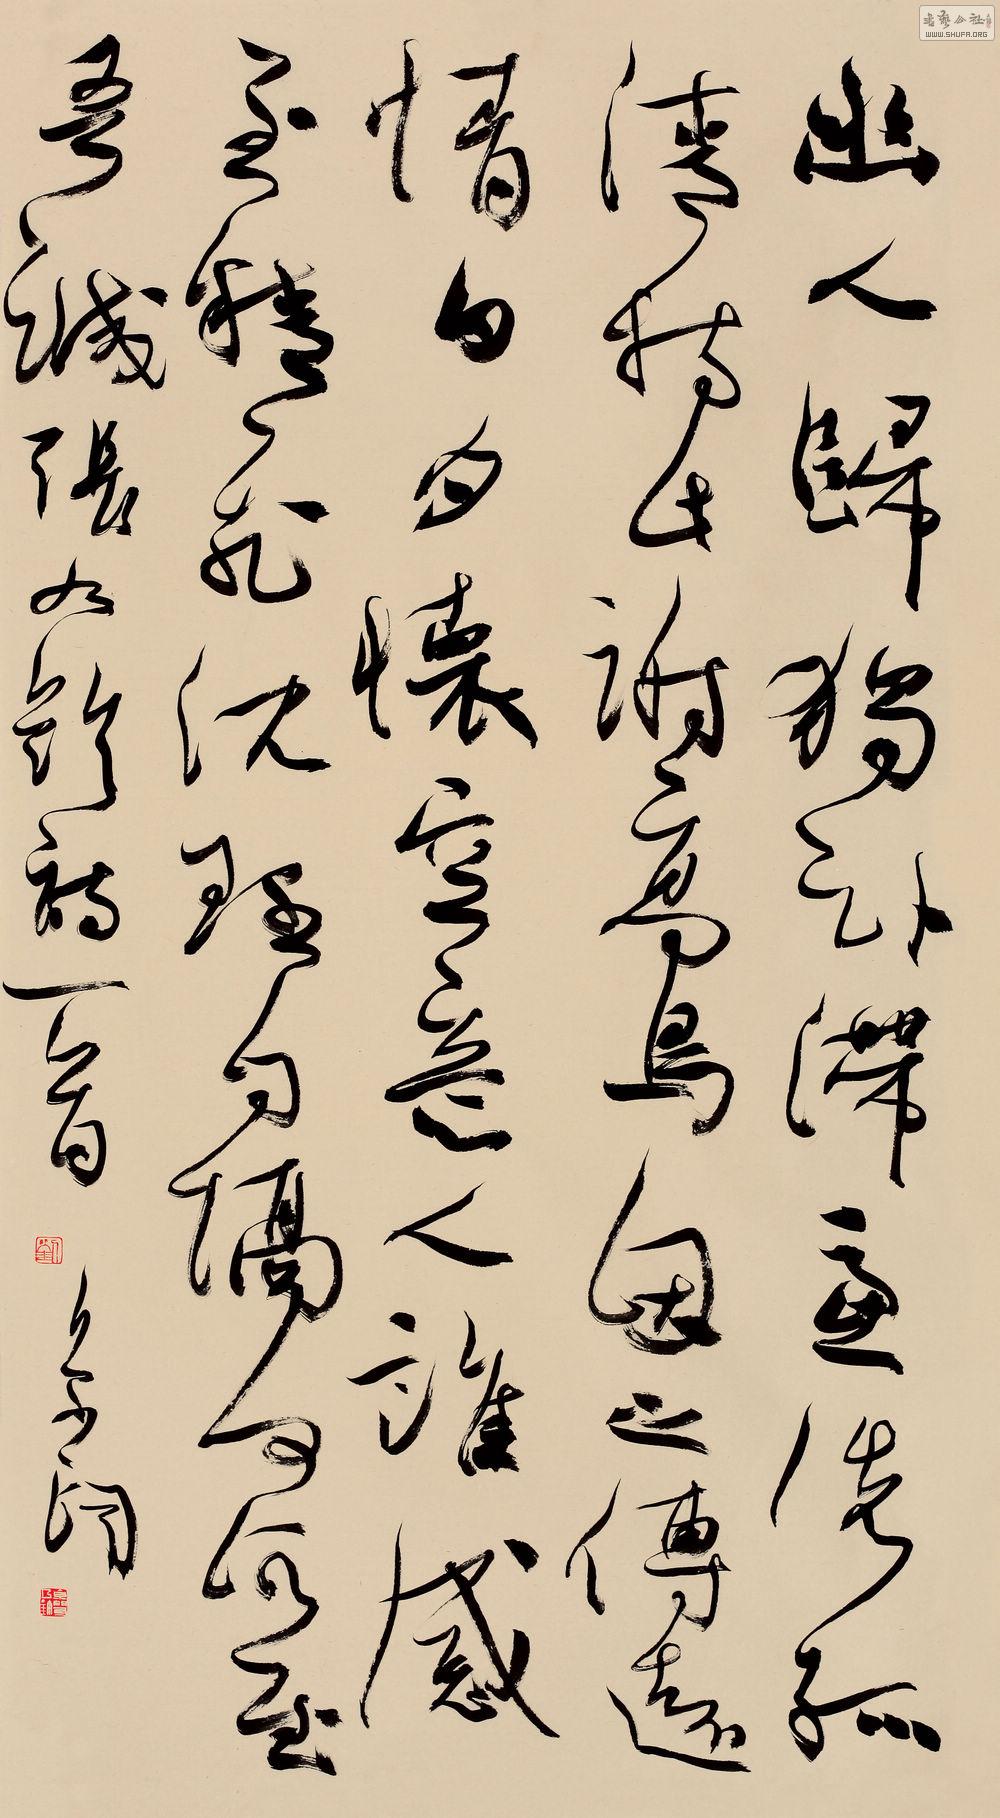 幽人歸獨卧滯慮洗孤
清持此謝高鳥因之傳遠
情日夕懷空意人誰感
至精飛沈理自隔何所慰
吾誠張九齡詩一首
書藝公社
WWW.SHUFA.ORG